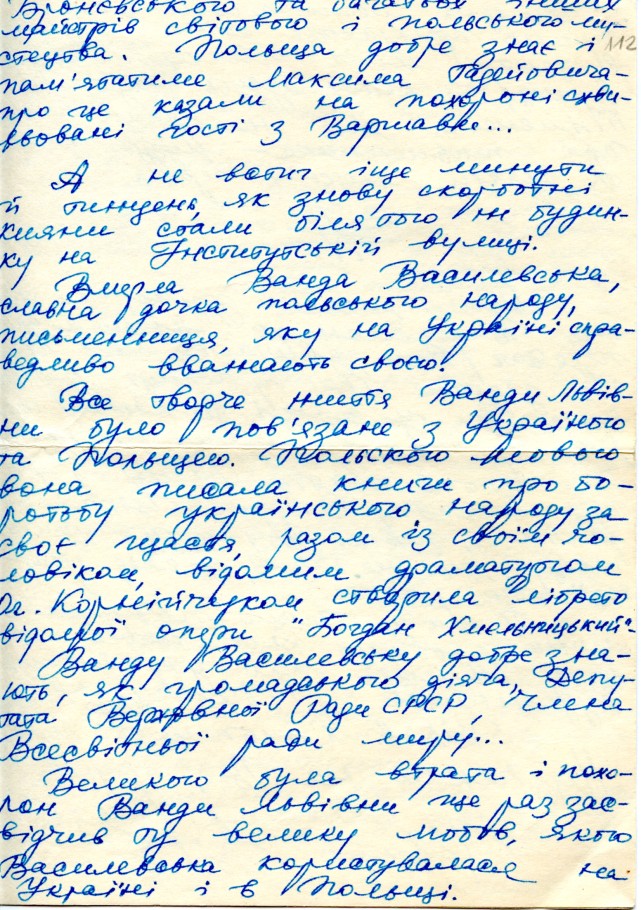 Броневського та багатьох інших
майстрів світового і польського ми-
стецтва. Польща добре знає і 112
пам'ятатиме Максима Тадейовича-
про це казали на похороні схви-
льовані гості з Варшави...
А не встиг іще минути
й тиждень, як знову скорботні
кияни стали біля того ж будин-
ку на Інститутській вулиці.
Вмерла Ванда Василевська,
славна дочка польського народу,
письменниця, яку на Україні спра-
ведливо вважають своєю.
Все творче життя Ванди Львів-
ни було пов'язане з Україною
та Польщею. Польською мовою
вона писала книги про бо-
ротьбу українського народу за
своє щастя, разом із своїм чо-
ловіком, відомим драматургом
Ол. Корнійчуком створила лібретто
відомої опери "Богдан Хмельницький"-
Ванду Василевську добре зна-
ють, як громадського діяча, Депу-
тата Верховної Ради СРСР, Члена
Всесвітньої ради миру...
Великою була втрата і похо-
рон Ванди Львівни ще раз зас-
відчив ту велику любов, якою
Василевська користувалася на
Україні і в Польщі.